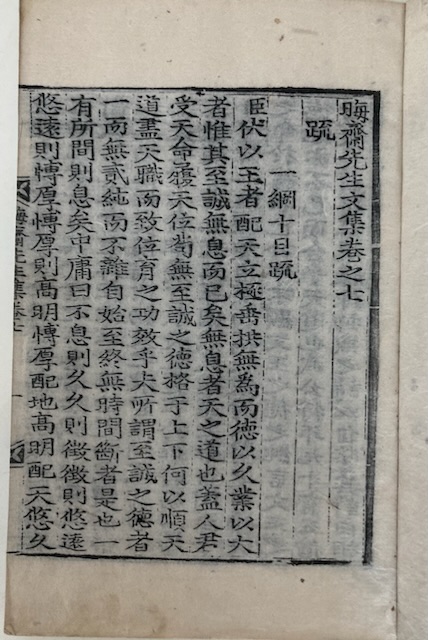 晦齋先生文集卷之七
疏
一綱十目疏
臣伏以王者配天立極垂拱無爲而德以久業以大
者惟其至誠無息而已矣無息者天之道也蓋人君
受天命履天位苟無至誠之德格于上下何以順天
道盡天職而致位育之功效乎夫所謂至誠之德者
一而無貳純而不雜自始至終無時間斷者是也一
有所間則息矣中庸曰不息則久久則徵徵則悠遠
悠遠則愽厚愽厚則髙明愽厚配地髙明配天悠久
晦齋先生集卷七
一